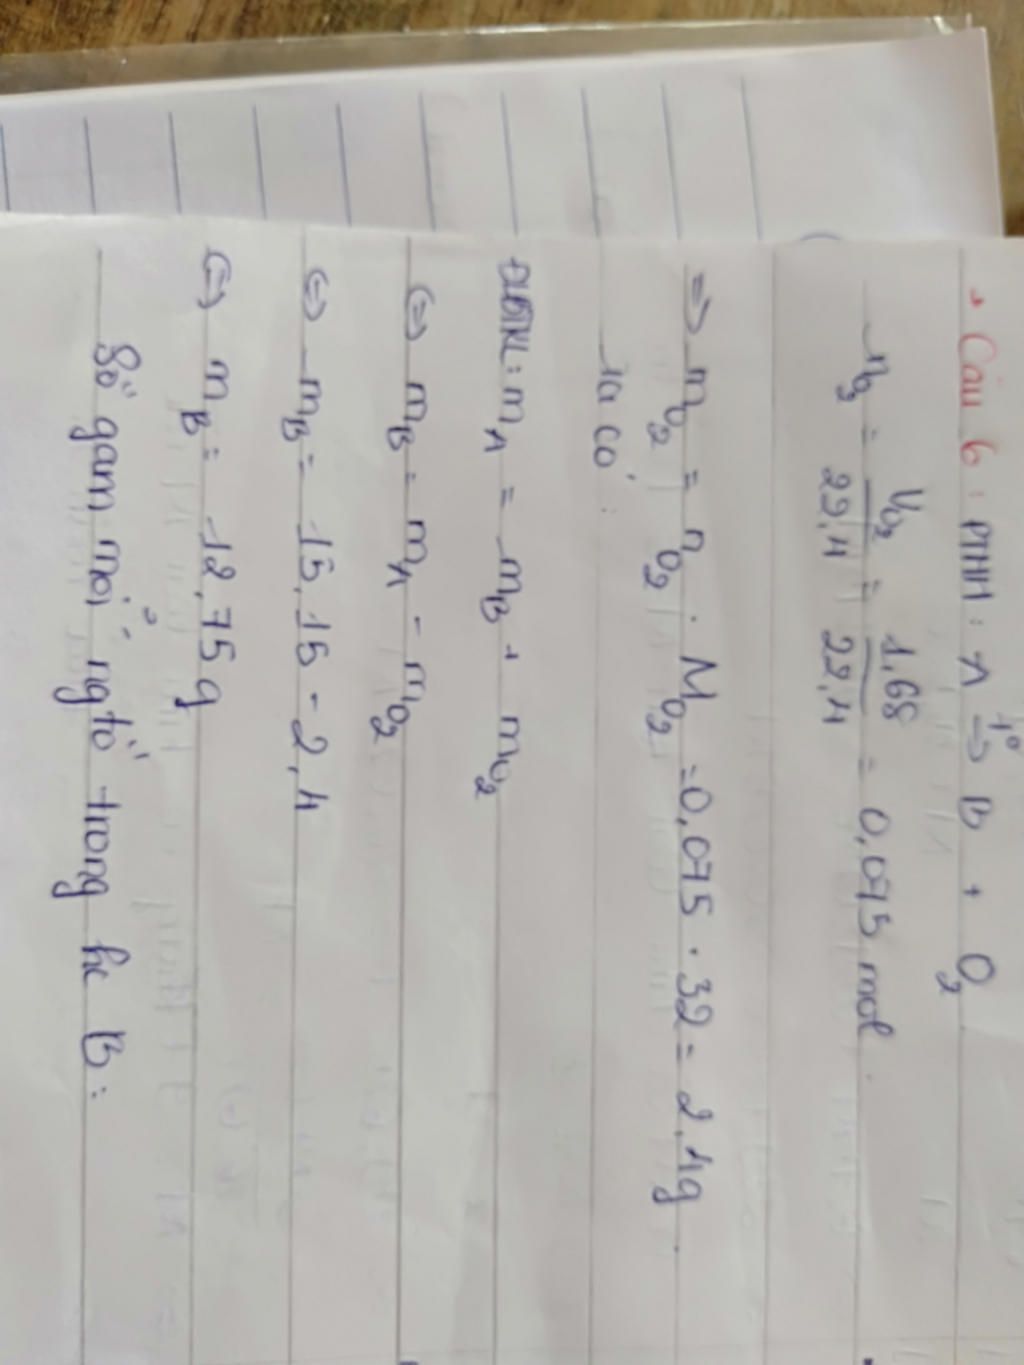 * Câu 6: PTHH: A t°→ B + O2
nO2 = VO2/22,4 = 1,68/22,4 = 0,075 mol.
=> mO2 = nO2 . MO2 = 0,075 . 32 = 2,4g.
Ta có:
ĐLBTKL: mA = mB + mO2
(=) mB = mA - mO2
(=) mB = 15,15 - 2,4
(=) mB = 12,75g
Số gam mỗi ngtố trong hc B: